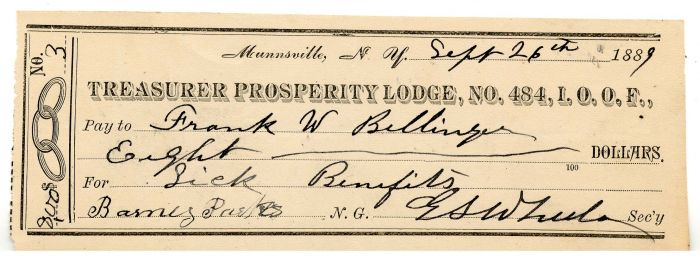 No. 3
Munnsville, N. Y. Sept 26th 1889
TREASURER PROSPERITY LODGE, NO. 484, I. O. O. F.,
Pay to Frank W Bellinger
Eight 100 DOLLARS.
For Sick Benefits
Barney Parkes N. G. E S Wheeler Sec'y
$8.00